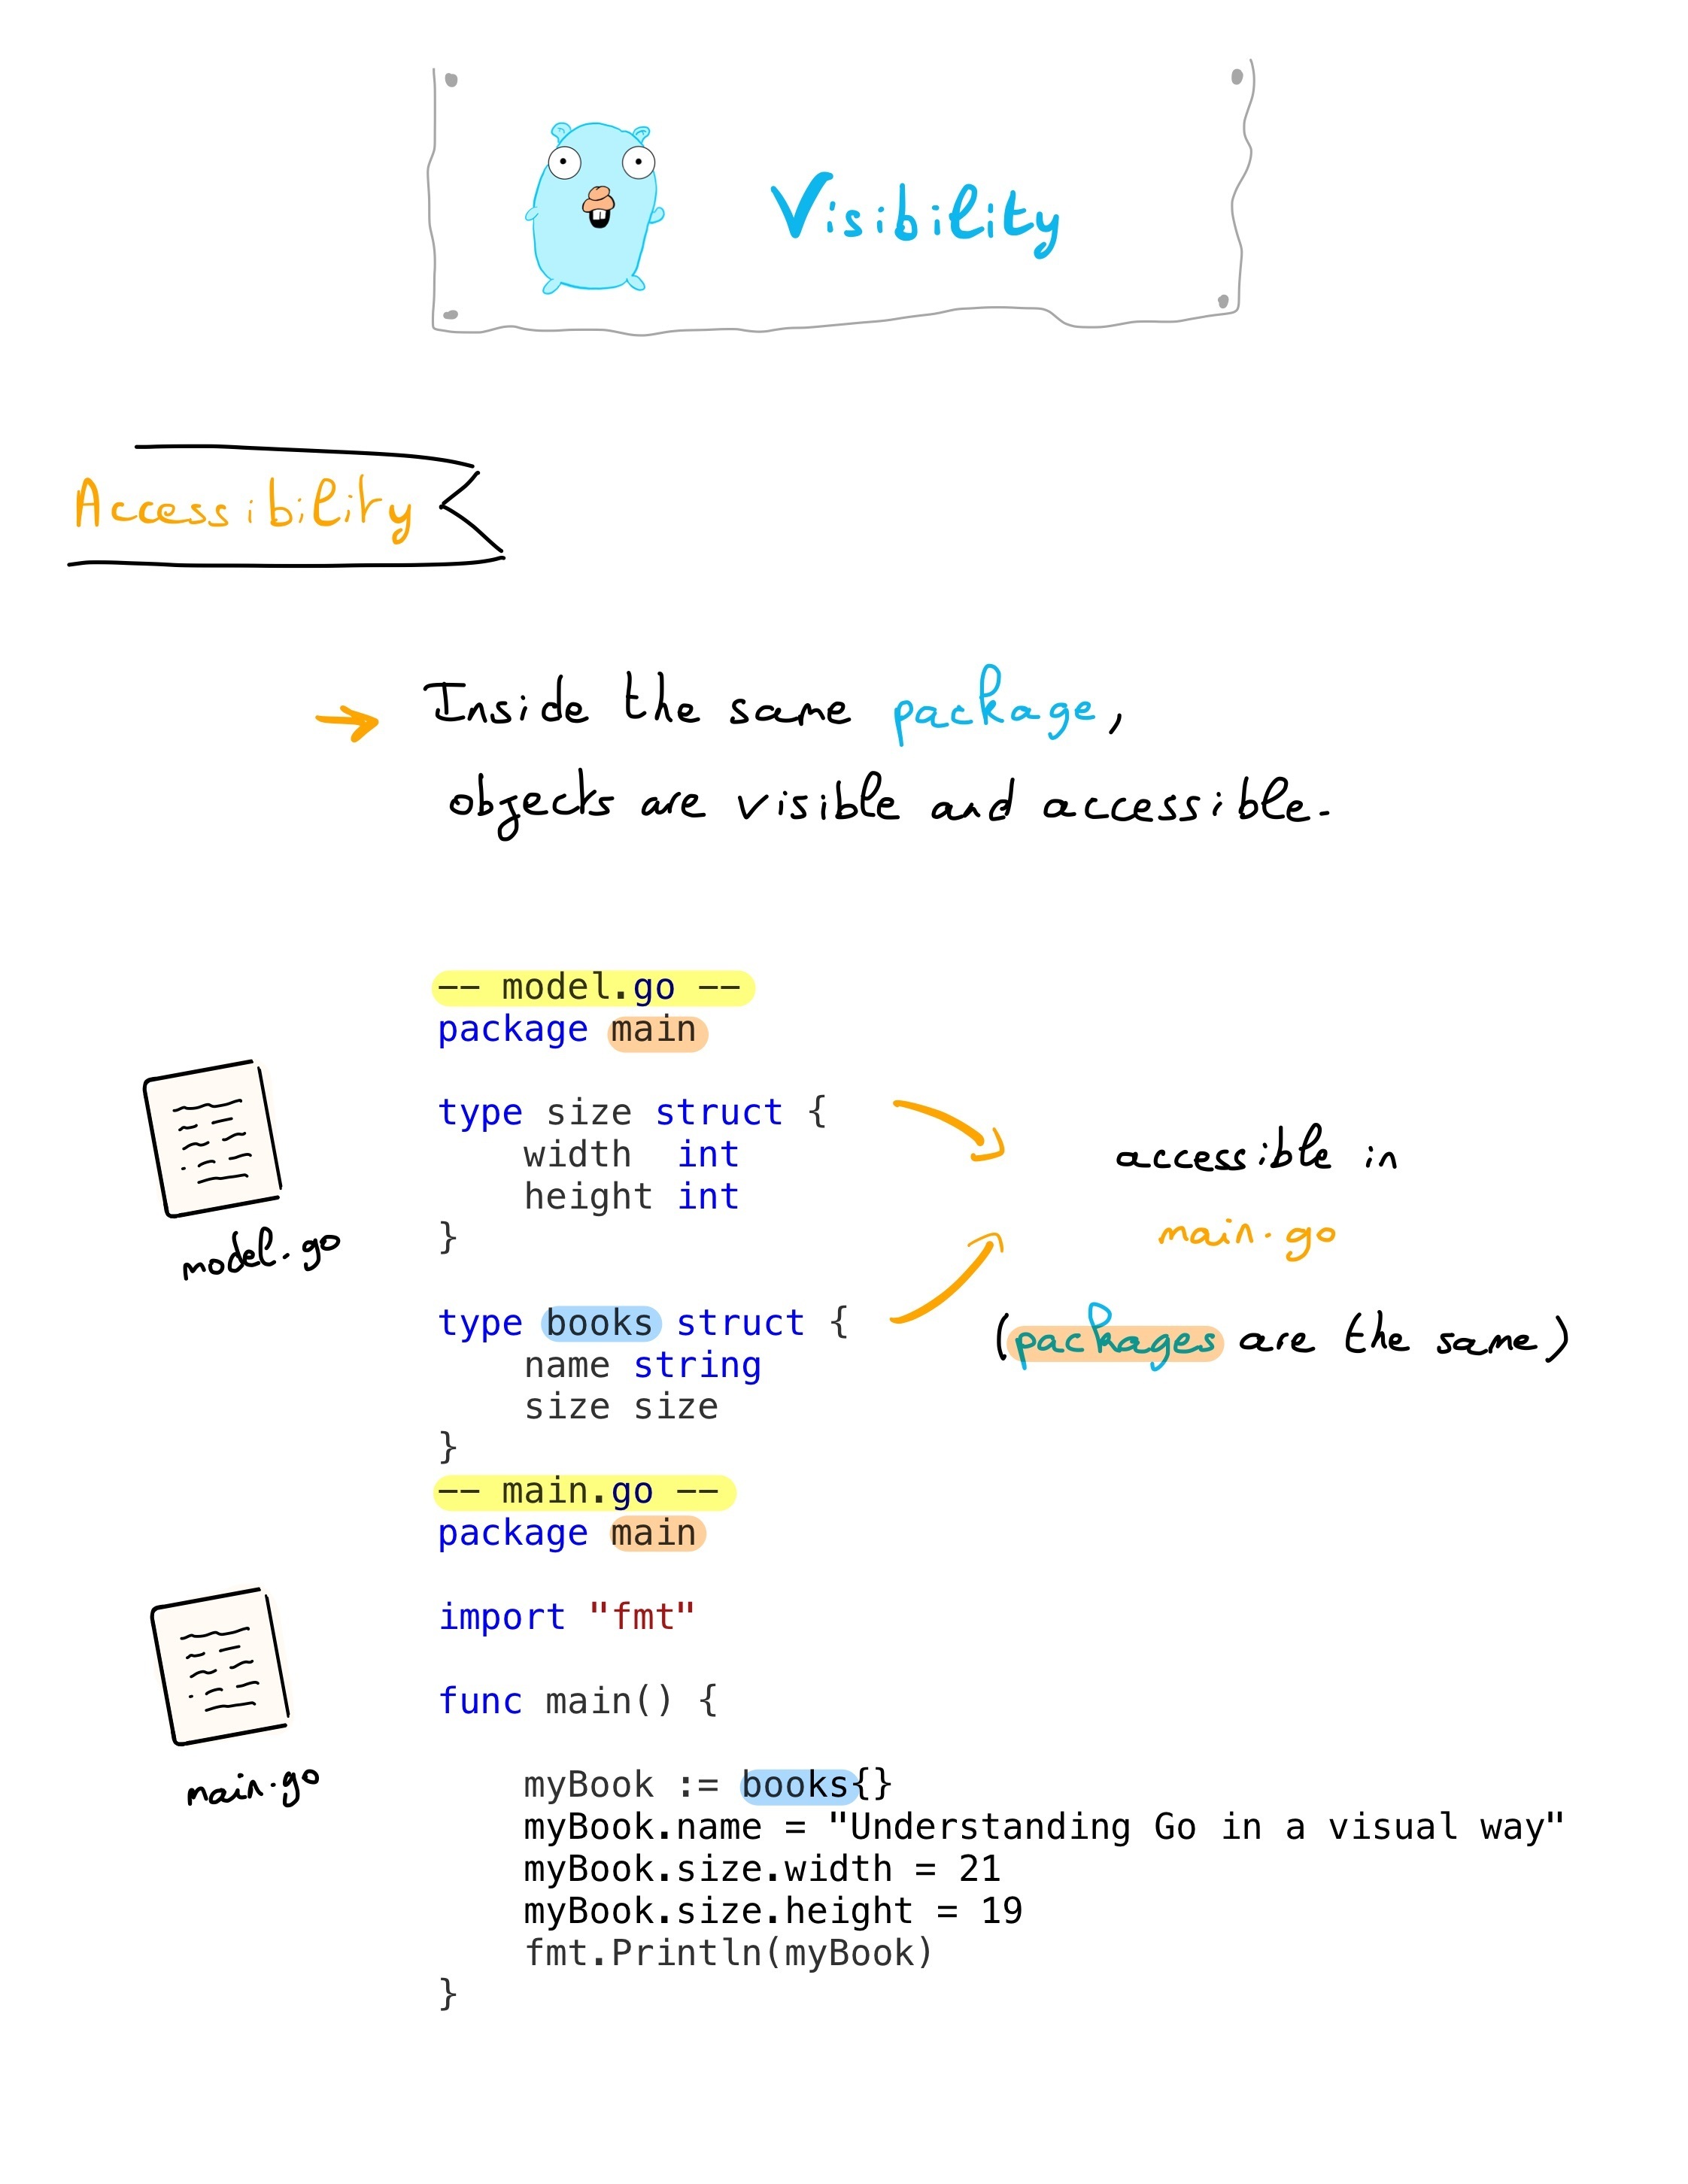 Visibility
Accessibility
Inside the same package,
objects are visible and accessible.
-- model.go --
package main
type size struct {
    width  int
    height int
}
type books struct {
    name string
    size size
}
model.go
accessible in
main.go
(packages are the same)
-- main.go --
package main
import "fmt"
func main() {
    myBook := books{}
    myBook.name = "Understanding Go in a visual way"
    myBook.size.width = 21
    myBook.size.height = 19
    fmt.Println(myBook)
}
main.go